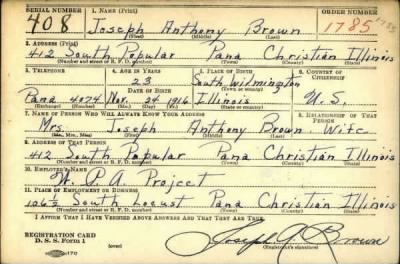 SERIAL NUMBER 1. NAME (Print) ORDER NUMBER
408 Joseph Anthony Brown 1785
(First) (Middle) (Last)
2. ADDRESS (Print)
412 South Popular Pana Christian Illinois
(Number and street or R. F. D. number) (Town) (County) (State)
3. TELEPHONE 4. AGE IN YEARS 5. PLACE OF BIRTH 6. COUNTRY OF CITIZENSHIP
23 South Wilmington
DATE OF BIRTH (Town or county)
Pana 4074 Nov. 24 1916 Illinois U.S.
(Exchange) (Number) (Mo.) (Day) (Yr.) (State or country)
7. NAME OF PERSON WHO WILL ALWAYS KNOW YOUR ADDRESS 8. RELATIONSHIP OF THAT PERSON
Mrs. Joseph Anthony Brown Wife
(Mr., Mrs., Miss) (First) (Middle) (Last)
9. ADDRESS OF THAT PERSON
412 South Popular Pana Christian Illinois
(Number and street or R. F. D. number) (Town) (County) (State)
10. EMPLOYER'S NAME
W. P. A. Project
11. PLACE OF EMPLOYMENT OR BUSINESS
106½ South Locust Pana Christian Illinois
(Number and street or R. F. D. number) (Town) (County) (State)
I AFFIRM THAT I HAVE VERIFIED ABOVE ANSWERS AND THAT THEY ARE TRUE.
REGISTRATION CARD
D. S. S. Form 1 Joseph A Brown
(over) (Registrant's signature)